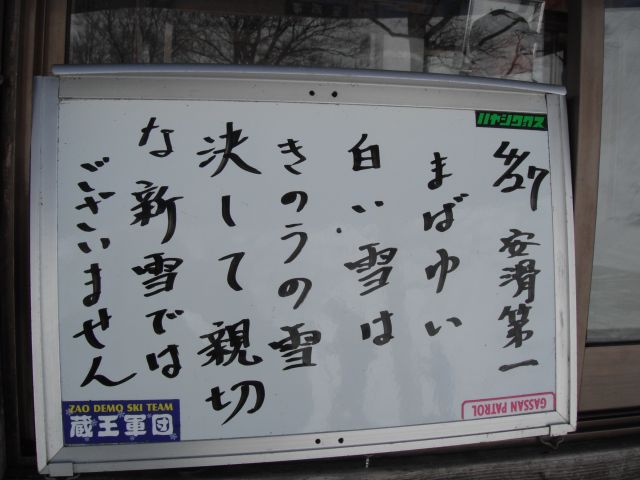 4/27 安滑第一
まばゆい
白い雪は
きのうの雪
決して親切
な新雪では
ございません
ハヤシワックス
ZAO DEMO SKI TEAM
蔵王軍団
GASSAN PATROL